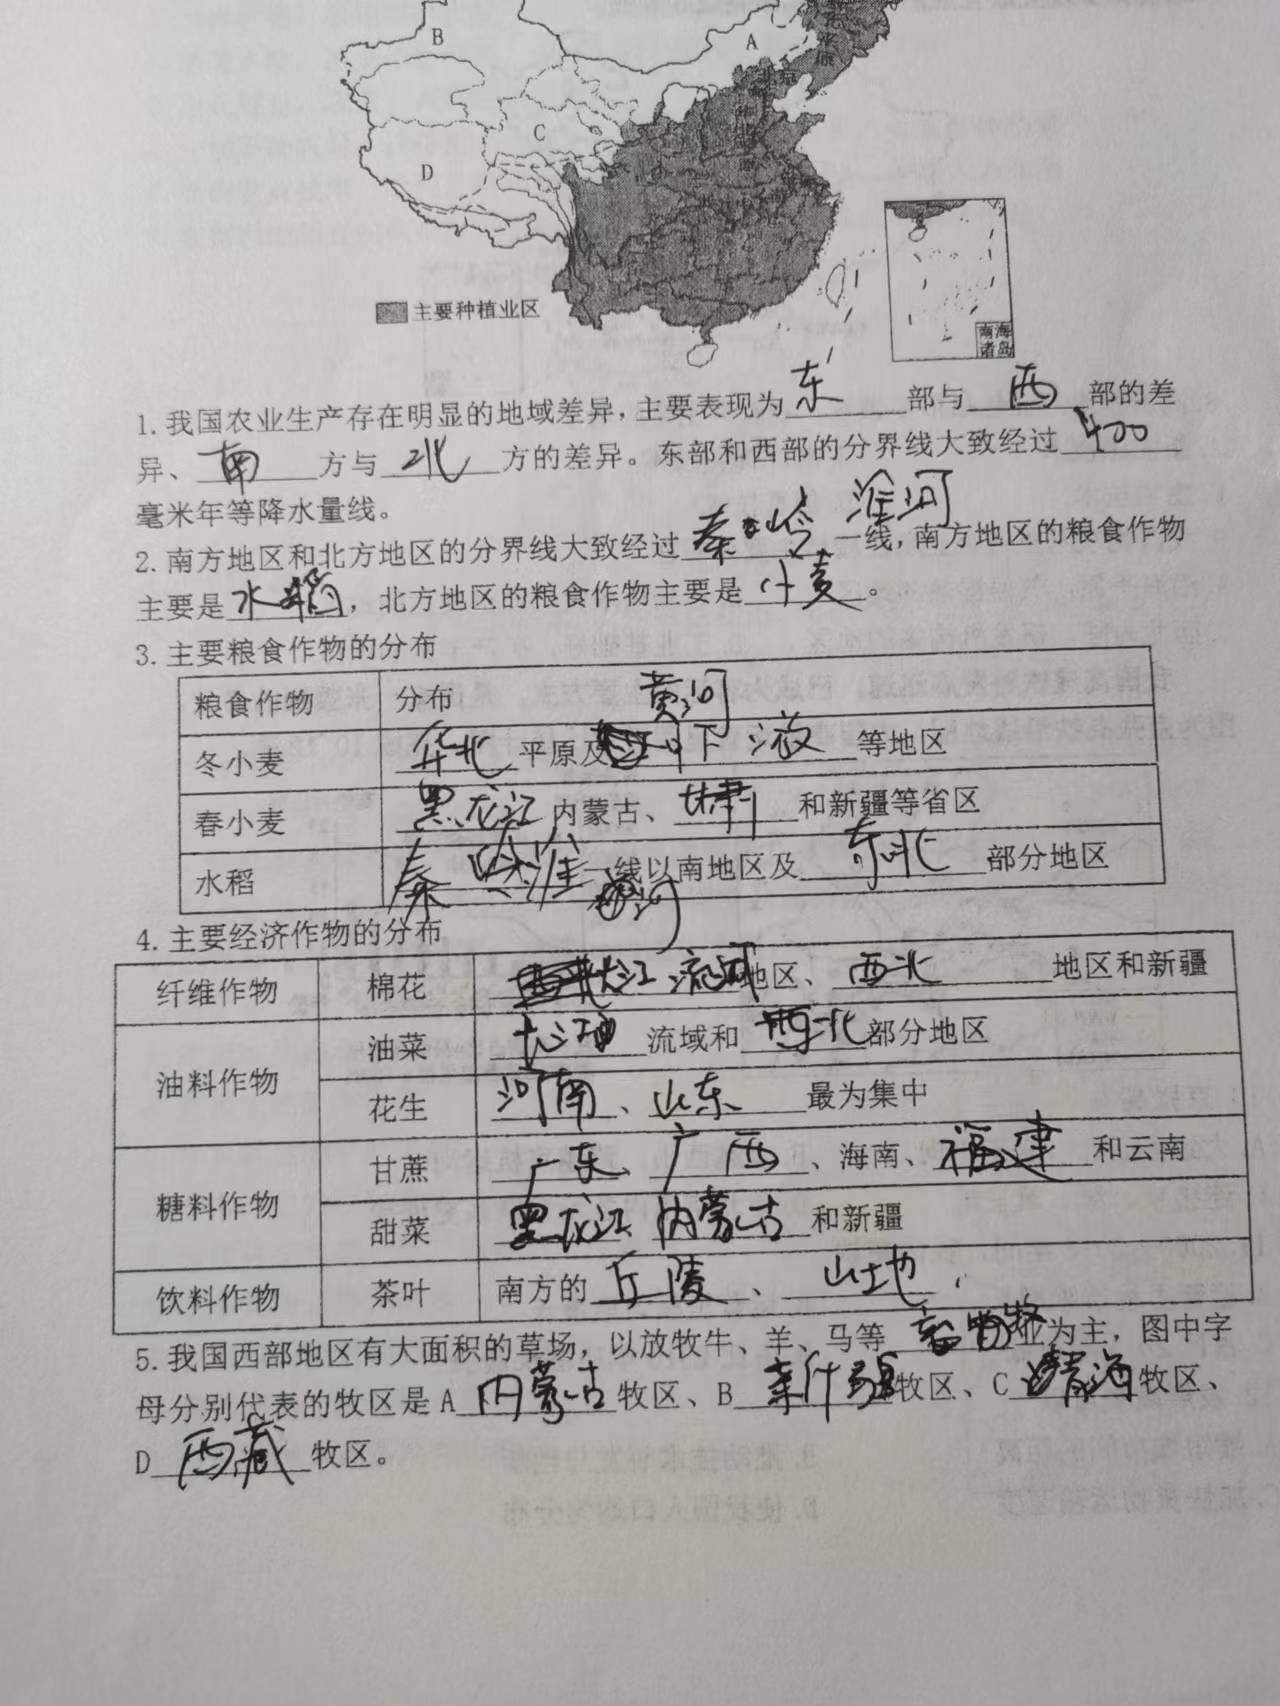 B
A
北京
C
D
主要种植业区
南海
诸岛
1.我国农业生产存在明显的地域差异,主要表现为东部与西部的差
异、南方与北方的差异。东部和西部的分界线大致经过400
毫米年等降水量线。
2.南方地区和北方地区的分界线大致经过秦岭淮河一线,南方地区的粮食作物
主要是水稻,北方地区的粮食作物主要是小麦。
3.主要粮食作物的分布
粮食作物 分布
冬小麦 华北平原及黄河下液等地区
春小麦 黑龙江内蒙古、甘肃和新疆等省区
水稻 秦岭淮河一线以南地区及东北部分地区
4.主要经济作物的分布
纤维作物 棉花 长江流河地区、西北地区和新疆
油料作物 油菜 长江流域和西北部分地区
花生 河南、山东最为集中
糖料作物 甘蔗 广东、广西、海南、福建和云南
甜菜 黑龙江、内蒙古和新疆
饮料作物 茶叶 南方的丘陵、山地
5.我国西部地区有大面积的草场,以放牧牛、羊、马等畜牧业为主,图中字
母分别代表的牧区是A内蒙古牧区、B新疆牧区、C青海牧区、
D西藏牧区。